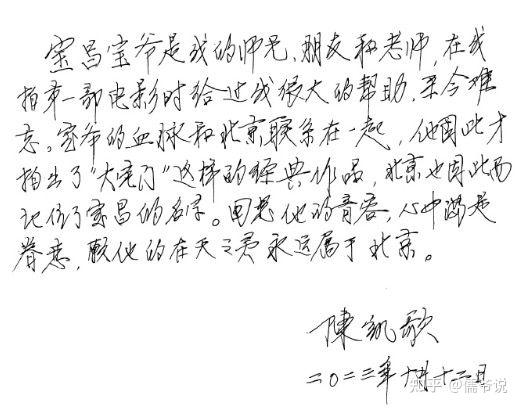 宝昌宝爷是我的师兄、朋友和老师，在我
拍第一部电影时给过我很大的帮助，至今难
忘。宝爷的血脉和北京联系在一起，他因此才
拍出了“大宅门”这样的经典作品，北京也因此而
记住了宝昌的名字。思想他的音容，心中满是
眷恋，愿他的在天之灵永远属于北京。
陳凱歌
二〇二三年十月十二日
知乎 @儒爷说